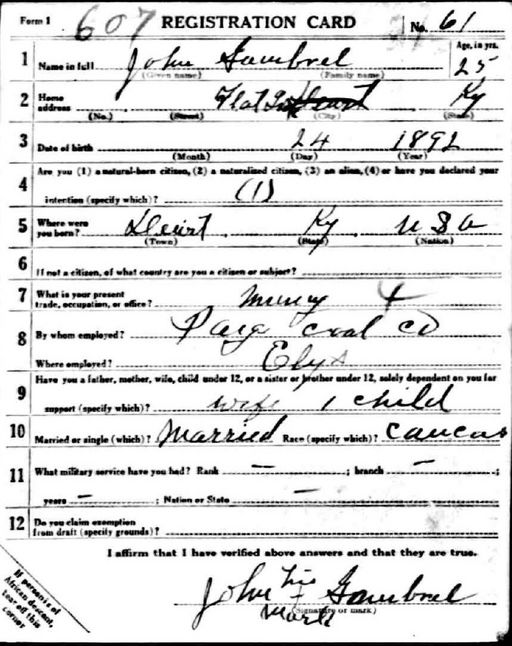 Form 1 607 REGISTRATION CARD No. 61
1 Name in full John Gambrel Age, in yrs. 25
(Given name) (Family name)
2 Home address Flat Ky
(No.) (Street) (City) (State)
3 Date of birth 24 1892
(Month) (Day) (Year)
4 Are you (1) a natural-born citizen, (2) a naturalized citizen, (3) an alien, (4) or have you declared your
intention (specify which)? (1)
5 Where were you born? Ky U S A
(Town) (State) (Nation)
6 If not a citizen, of what country are you a citizen or subject?
7 What is your present trade, occupation, or office?
8 By whom employed? coal co
Where employed? Elys
9 Have you a father, mother, wife, child under 12, or a sister or brother under 12, solely dependent on you for
support (specify which)? wife 1 child
10 Married or single (which)? Married Race (specify which)? Caucas
11 What military service have you had? Rank — ; branch — ;
years — ; Nation or State —
12 Do you claim exemption from draft (specify grounds)?
I affirm that I have verified above answers and that they are true.
John his x mark Gambrel
(Signature or mark)
If person is of
African descent,
tear off this
corner